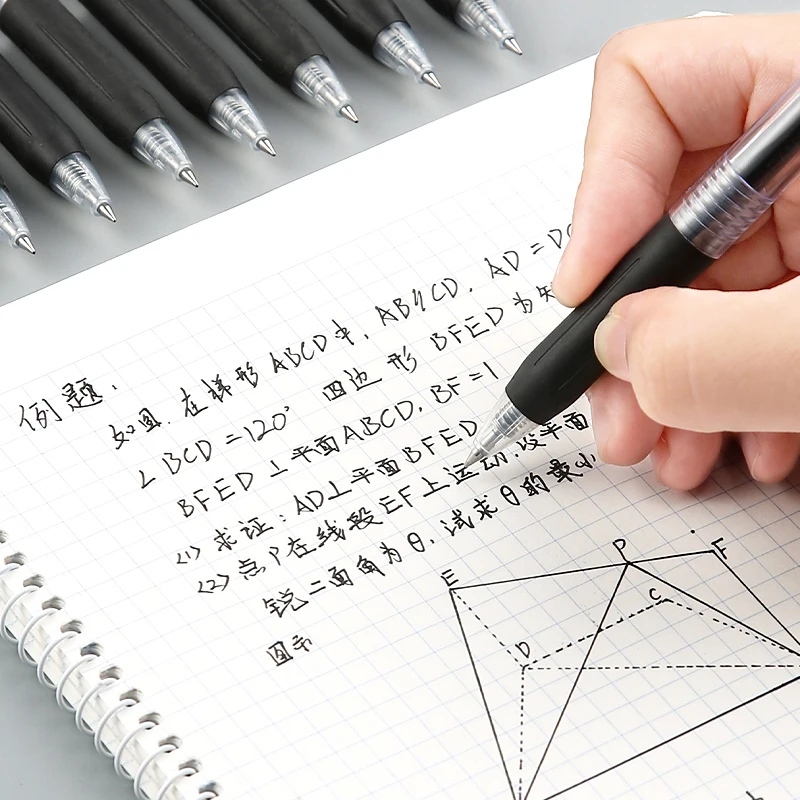 例题：
如图，在梯形ABCD中，AB∥CD，AD=DC
∠BCD=120° 四边形BFED为矩
BFED⊥平面ABCD，BF=1
(1)求证：AD⊥平面BFED
(2)点P在线段EF上运动，设平面
锐二面角为θ，试求θ的最小
图示
E P F
C
D